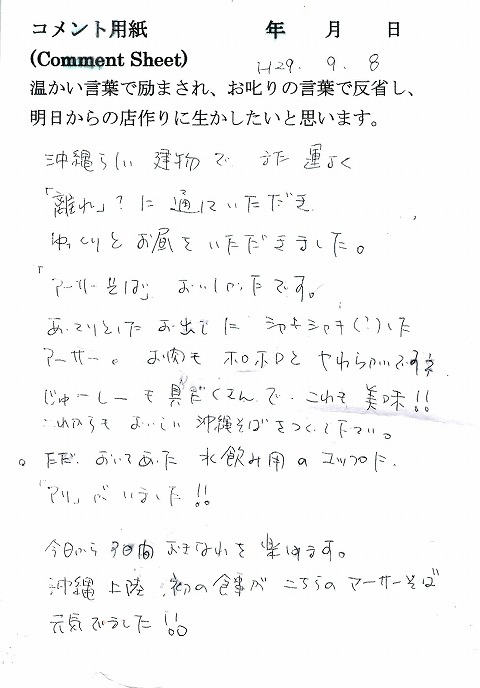 コメント用紙 年 月 日
(Comment Sheet) H29. 9. 8
温かい言葉で励まされ、お叱りの言葉で反省し、
明日からの店作りに生かしたいと思います。
沖縄らしい 建物で また 運よく
「離れ」? に 通していただき
ゆっくりと お昼を いただきました。
「アーサーそば」 おいしかったです。
あっさりとした お出しに シャキシャキ(?)した
アーサー。 お肉も ホロホロと やわらかいですネ
じゅーしーも 具だくさんで、これも 美味!!
これからも おいしい 沖縄そばをつくって下さい。
○ ただ、おいてあった 水飲み用の コップに、
「アリ」が いました!!
今日から 3日間 おきなわを 楽しみます。
沖縄上陸、初の食事が こちらの アーサーそば
元気でました!!